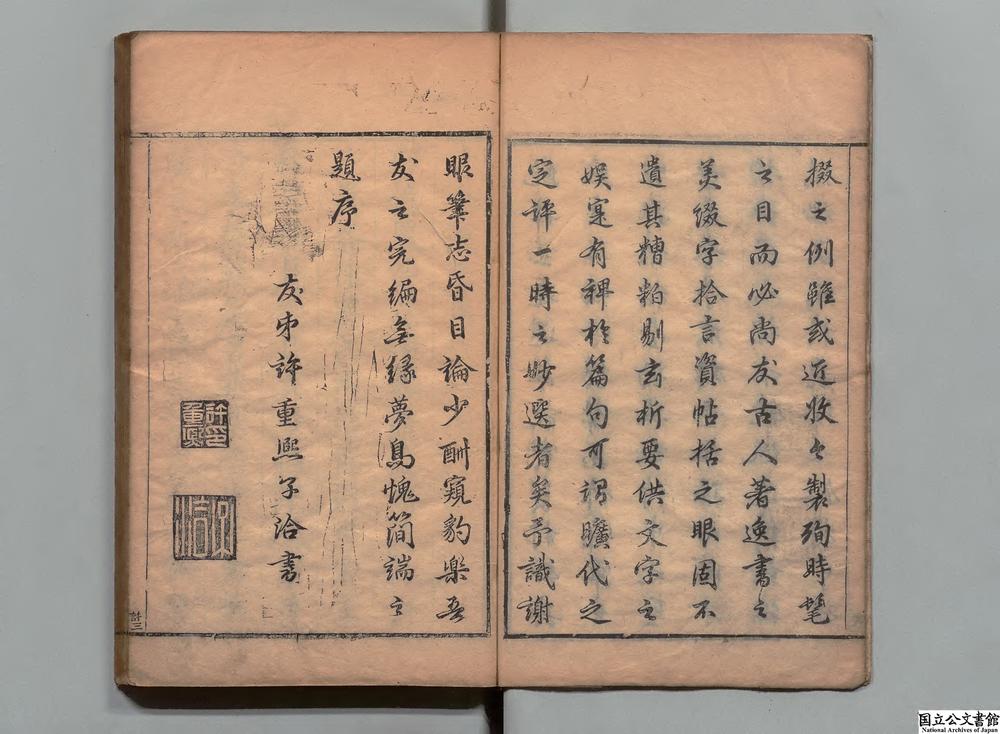 掇之例雖或近收之製殉時髦
之目而必尚友古人著逸書之
美綴字拾言資帖括之眼固不
遺其糟粕剔玄析要供文字之
娛寔有裨於篇句可謂曠代之
定評一時之妙選者矣予識謝
眼筆志昏目論少酬窺豹樂吾
友之完編無緣夢鳥愧簡端之
題序
友弟許重熙子洽書
許印重熙
子洽
許三
国立公文書館
National Archives of Japan